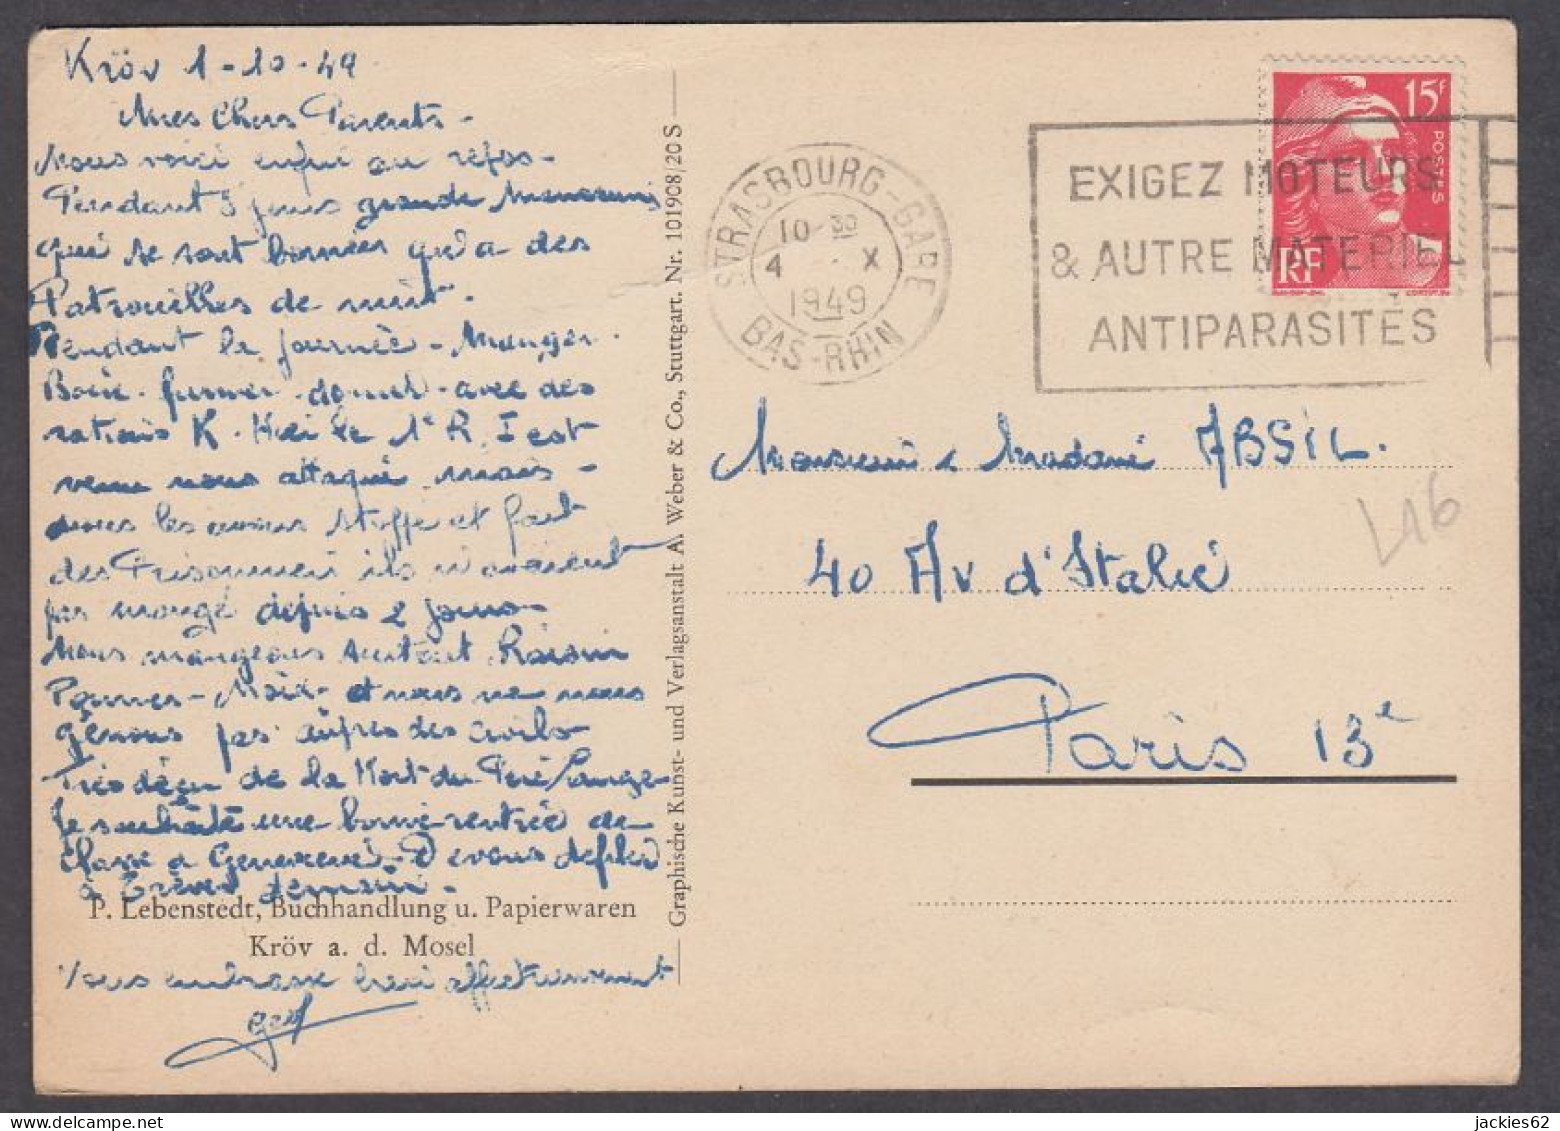 Kröv 1-10-49.
Mes Chers Parents -
Nous voici enfin au repos -
Pendant 3 jours grande Manoeuvres
qui se sont bornées qu'a des
Patrouilles de nuit.
Pendant la journée - Manger.
Boire - fumer - dormir - avec des
rations K. Hier le 1e R. I est
venu nous attaqué, mais -
nous les avons stoppé et fait
des Prisonniers ils n'avaient
pas mangé depuis 2 jours -
Nous mangeons surtout Raisin
Pommes - Noix - et nous ne nous
gênons pas auprès des civils -
Très déçu de la Mort du Père
Je souhaite une bonne rentrée de
classe a Geneviève - devons défiler
à Trèves demain. -
P. Lebenstedt, Buchhandlung u. Papierwaren
Kröv a. d. Mosel
Vous embrasse bien affectueusement
Graphische Kunst- und Verlagsanstalt A. Weber & Co., Stuttgart. Nr. 101908/20 S
STRASBOURG-GARE
10 30
4 X
1949
BAS-RHIN
EXIGEZ MOTEURS
& AUTRE MATERIEL
ANTIPARASITÉS
15F
POSTES
RF
Monsieur & Madame ABSIL.
40 Av d'Italie
Paris 13e
L16
jackies62